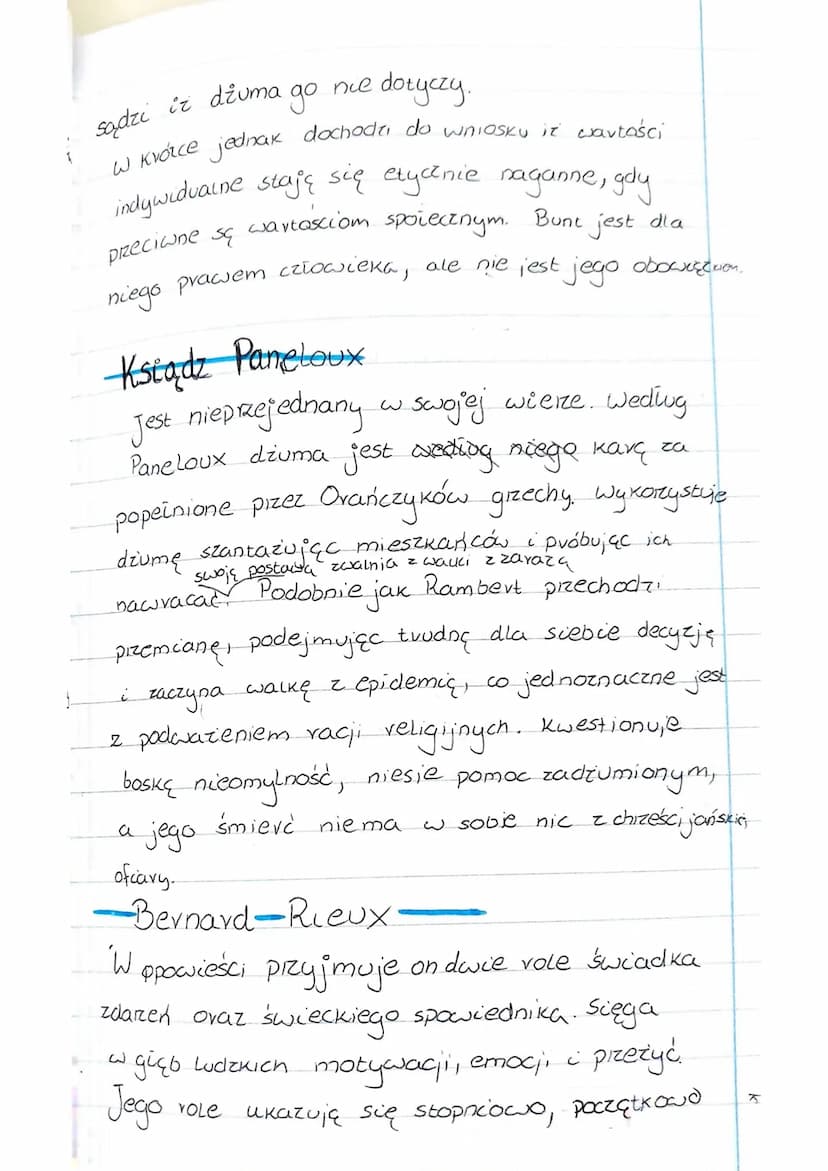 sądzi iż dżuma go nie dotyczy.
W krótce jednak dochodzi do wniosku iż wartości
indywidualne stają się etycznie naganne, gdy
przeciwne są wartościom społecznym. Bunt jest dla
niego prawem człowieka, ale nie jest jego obowiązkiem.
Ksiądz Paneloux
Jest nieprzejednany w swojej wierze. Według
Paneloux dżuma jest według niego karą za
popełnione przez Orańczyków grzechy. Wykorzystuje
dżumę szantażując mieszkańców i próbując ich
swoją postawą zwalnia z walki z zarazą
nawracać. Podobnie jak Rambert przechodzi
przemianę, podejmując trudną dla siebie decyzję
i zaczyna walkę z epidemią, co jednoznaczne jest
z podważeniem racji religijnych. Kwestionuje
boską nieomylność, niesie pomoc zadżumionym,
a jego śmierć niema w sobie nic z chrześcijańskiej
ofiary.
Bernard Rieux
W opowieści przyjmuje on dwie role świadka
zdarzeń oraz świeckiego spowiednika. Sięga
w głąb ludzkich motywacji, emocji i przeżyć.
Jego role ukazują się stopniowo, początkowo